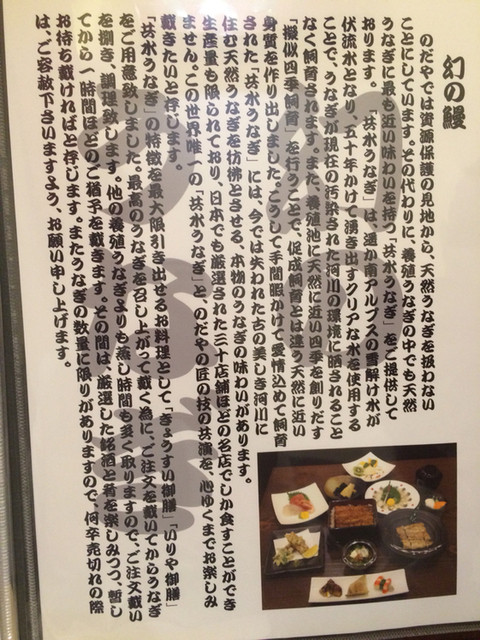 幻の鰻
のだやでは資源保護の見地から、天然うなぎを扱わない
ことにしています。その代わりに、養殖うなぎの中でも天然
うなぎに最も近い味わいを持つ「共水うなぎ」をご提供して
おります。「共水うなぎ」は遥か南アルプスの雪解け水が
伏流水となり、五十年かけて湧き出すクリアな水を使用する
ことで、うなぎが現在の汚染された河川の環境に晒されること
なく飼育されます。また、養殖池に天然に近い四季を創りだす
「擬似四季飼育」を行うことで、促成飼育とは違う天然に近い
身質を作り出しました。こうして手間暇かけて愛情込めて飼育
された「共水うなぎ」には、今では失われた古の美しき河川に
住む天然うなぎを彷彿とさせる、本物のうなぎの味わいが有ります。
生産量も限られており、日本でも厳選された三十店舗ほどの名店でしか食すことができ
ません。この世界唯一の「共水うなぎ」と、のだやの匠の技の共演を、心ゆくまでお楽しみ
戴きたいと存じます。
「共水うなぎ」の特徴を最大限引き出せるお料理として「きょうすい御膳」「いりや御膳」
をご用意致しました。最高のうなぎを召し上がって戴く為に、ご注文を戴いてからうなぎ
を捌き、調理致します。他の養殖うなぎよりも蒸し時間も多く取りますので、ご注文戴い
てから一時間ほどのご猶予を戴きます。その間は、厳選した銘酒と肴を楽しみつつ、暫し
お待ち戴ければと存じます。またうなぎの数量に限りがありますので、何卒売切れの際
は、ご容赦下さいますよう、お願い申し上げます。